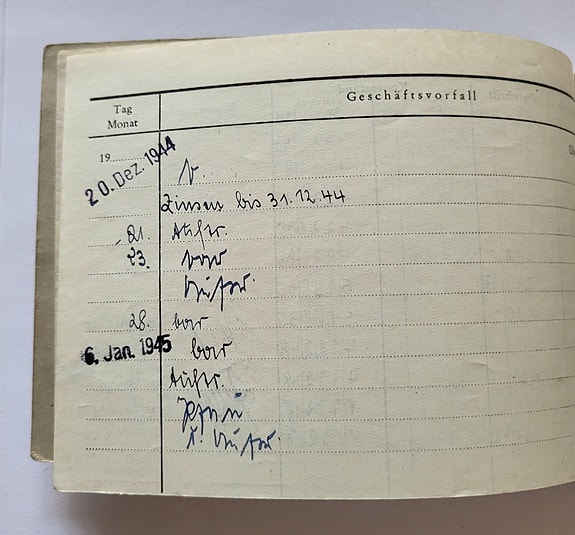 Tag
Monat
Geschäftsvorfall
19
20. Dez. 1944
V.
Zinsen bis 31.12.44
21. Auftr.
23. bar
28. bar
6. Jan. 1945 bar
Auftr.